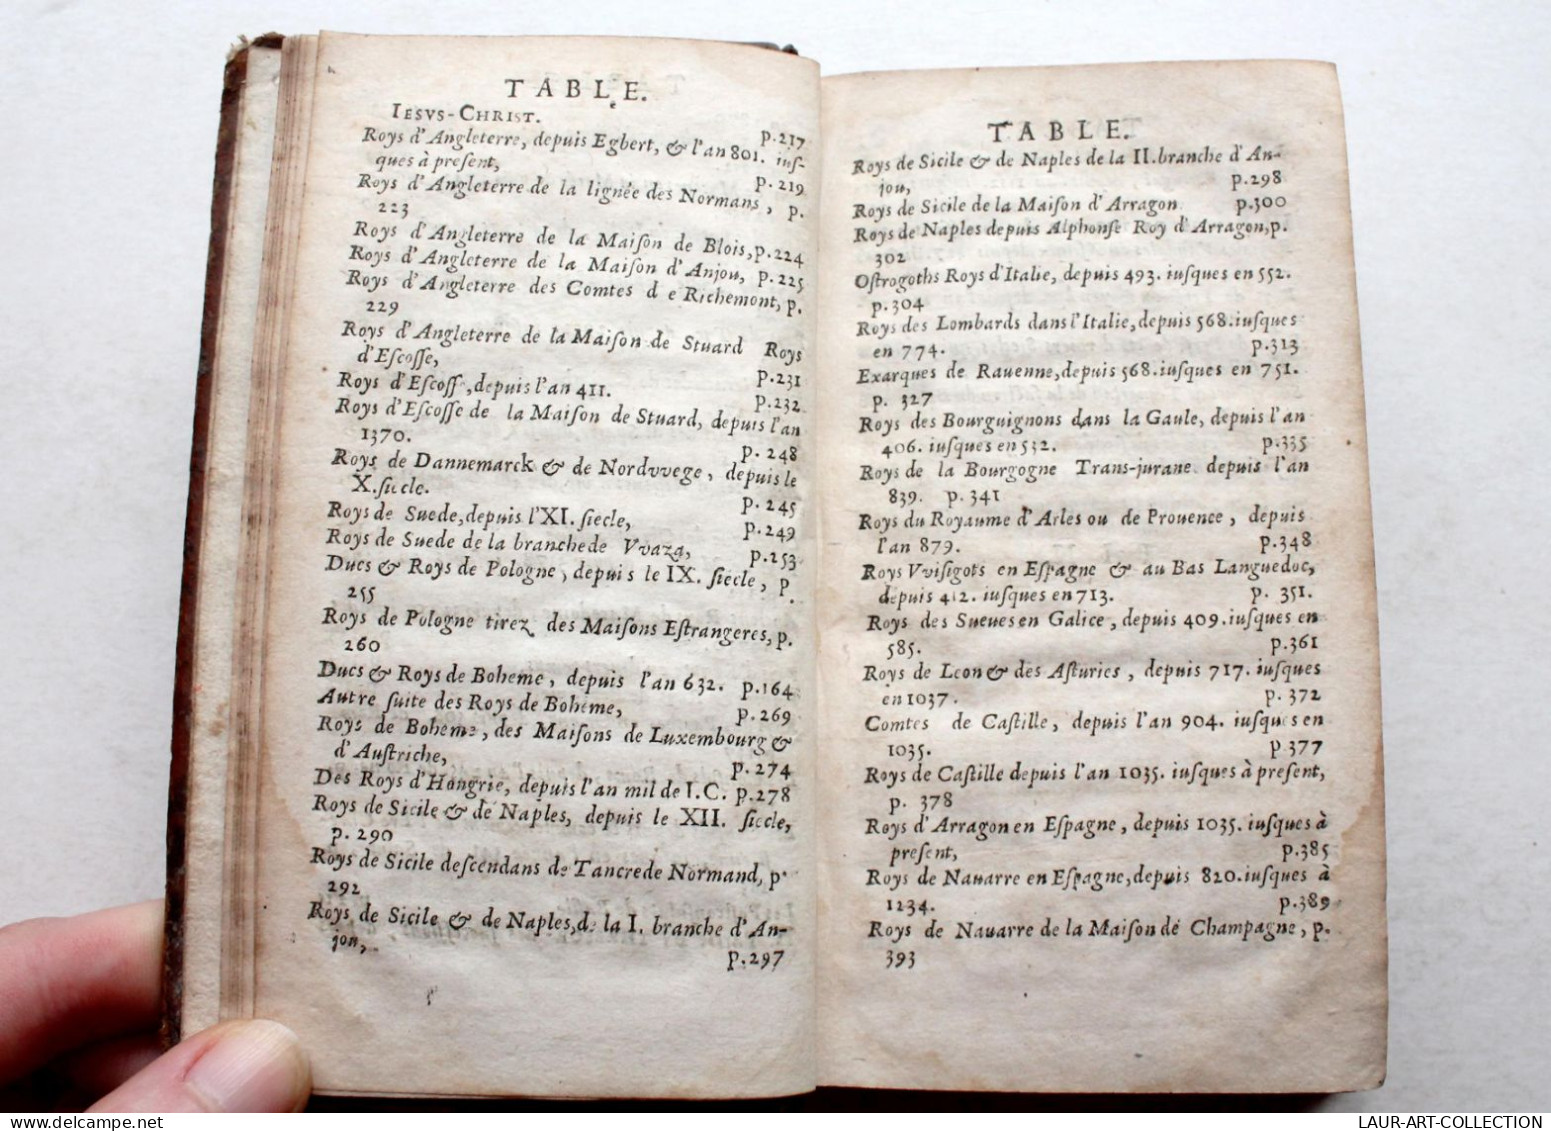 TABLE.
IESVS-CHRIST. p.217
Roys d'Angleterre, depuis Egbert, & l'an 801. iuſ-
ques à preſent, p.219
Roys d'Angleterre de la lignée des Normans, p.
223
Roys d'Angleterre de la Maiſon de Blois, p.224
Roys d'Angleterre de la Maiſon d'Anjou, p.225
Roys d'Angleterre des Comtes d e Richemont, p.
229
Roys d'Angleterre de la Maiſon de Stuard Roys
d'Eſcoſſe, p.231
Roys d'Eſcoſſ, depuis l'an 411. p.232
Roys d'Eſcoſſe de la Maiſon de Stuard, depuis l'an
1370. p. 248
Roys de Dannemarck & de Nordvvege, depuis le
X. ſiecle. p. 245
Roys de Suede, depuis l'XI. ſiecle, p.249
Roys de Suede de la branche de Vvaza, p.253
Ducs & Roys de Pologne, depuis le IX. ſiecle, p.
255
Roys de Pologne tirez des Maiſons Eſtrangeres, p.
260
Ducs & Roys de Boheme, depuis l'an 632. p.164
Autre ſuite des Roys de Boheme, p.269
Roys de Boheme, des Maiſons de Luxembourg &
d'Auſtriche, p.274
Des Roys d'Hongrie, depuis l'an mil de I.C. p.278
Roys de Sicile & de Naples, depuis le XII. ſiecle,
p. 290
Roys de Sicile deſcendans de Tancrede Normand, p.
292
Roys de Sicile & de Naples, de la I. branche d'An-
jou, p.297
TABLE.
Roys de Sicile & de Naples de la II. branche d'An-
jou, p.298
Roys de Sicile de la Maiſon d'Arragon p.300
Roys de Naples depuis Alphonſe Roy d'Arragon, p.
302
Oſtrogoths Roys d'Italie, depuis 493. iuſques en 552.
p.304
Roys des Lombards dans l'Italie, depuis 568. iuſques
en 774. p.313
Exarques de Rauenne, depuis 568. iuſques en 751.
p. 327
Roys des Bourguignons dans la Gaule, depuis l'an
406. iuſques en 532. p.335
Roys de la Bourgogne Trans-jurane depuis l'an
839. p.341
Roys du Royaume d'Arles ou de Prouence, depuis
l'an 879. p.348
Roys Vviſigots en Eſpagne & au Bas Languedoc,
depuis 412. iuſques en 713. p. 351.
Roys des Sueues en Galice, depuis 409. iuſques en
585. p.361
Roys de Leon & des Aſturies, depuis 717. iuſques
en 1037. p. 372
Comtes de Caſtille, depuis l'an 904. iuſques en
1035. p 377
Roys de Caſtille depuis l'an 1035. iuſques à preſent,
p. 378
Roys d'Arragon en Eſpagne, depuis 1035. iuſques à
preſent, p.385
Roys de Nauarre en Eſpagne, depuis 820. iuſques à
1234. p.389
Roys de Nauarre de la Maiſon de Champagne, p.
393
LAUR-ART-COLLECTION